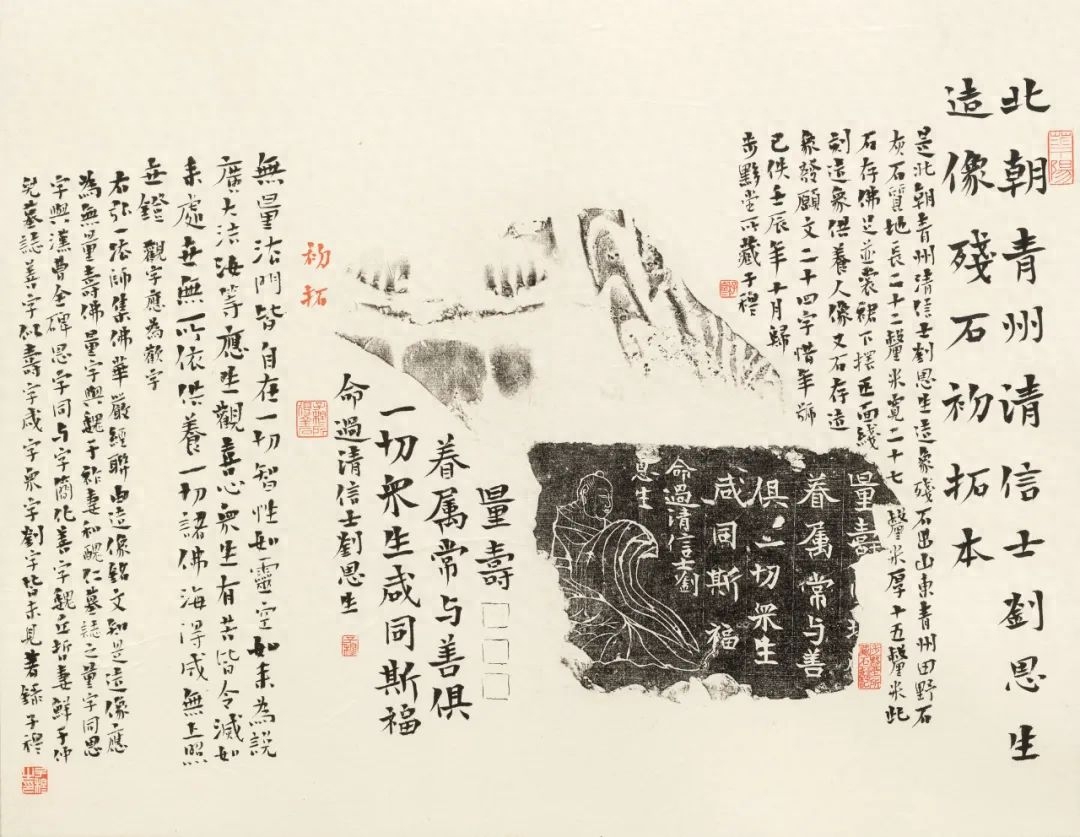 北朝青州清信士劉思生
造像殘石初拓本
是北朝青州清信士劉思生造象殘石出山東青州田野石
灰石質地長二十二釐米寬二十七釐米厚十五釐米此
石存佛足並裳裾下擺正面綫
刻造象供養人像又石存造
象發願文二十四字惜年號
已佚壬辰年十月歸
步黟堂所藏子穆
量壽
眷属常与善
俱一切眾生
咸同斯福
命過清信士劉
思生
量壽□□□
眷属常与善俱
一切眾生咸同斯福
命過清信士劉思生
初拓
無量法門皆自在一切智性如靈空如來為説
廣大法海等應生觀喜心眾生有苦皆令滅如
來處世無所依供養一切諸佛海得成無上照
世鐙 觀字應為歡字
右弘一法師集佛華嚴經聯由造像銘文知是造像應
為無量壽佛量字與魏于祚妻和醜仁墓誌之量字同思
字與漢曹全碑思字同与字簡化善字魏丘哲妻鮮于仲
兒墓誌善字似壽字咸字眾字劉字皆未見著錄子穆